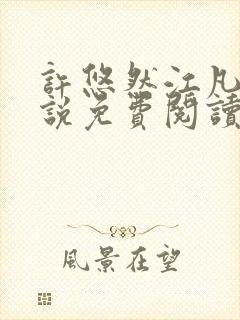 許悠然江凡
說免費閱讀
風景在望